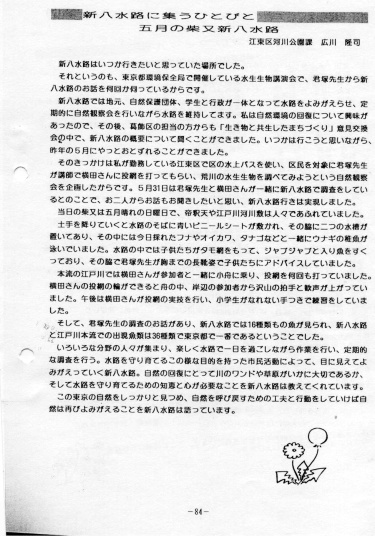 新八水路に集うひとびと
五月の柴又新八水路
江東区河川公園課　広川　隆司
新八水路はいつか行きたいと思っていた場所でした。
それというのも、東京都環境保全局で開催している水生生物講演会で、君塚先生から新
八水路のお話を何回か伺っているからです。
新八水路では地元、自然保護団体、学生と行政が一体となって水路をよみがえらせ、定
期的に自然観察会を行いながら水路を維持してます。私は自然環境の回復について興味が
あったので、その後、葛飾区の担当の方からも「生き物と共生したまちづくり」意見交換
会の中で、新八水路の概要について聞くことができました。いつかは行こうと思いながら、
昨年の5月にやっとおとずれることができました。
そのきっかけは私が勤務している江東区で区の水上バスを使い、区民を対象に君塚先生
が講師で横田さんに投網を打ってもらい、荒川の水生生物を調べてみようという自然観察
会を企画したからです。5月31日は君塚先生と横田さんが一緒に新八水路で調査をしてい
るとのことで、お二人からお話もお聞きしたいと思い、新八水路行きは実現しました。
当日の柴又は五月晴れの日曜日で、帝釈天や江戸川河川敷は人々であふれていました。
土手を降りていくと水路のそばに青いビニールシートが敷かれ、その脇に二つの水槽が
置いてあり、その中には今日採れたフナやオイカワ、タナゴなどと一緒にウナギの稚魚が
泳いでいました。水路の中では子供たちがタモ網をもって、ジャブジャブと入り魚をすく
っており、その脇で君塚さんが胸までの長靴姿で子供たちにアドバイスしていました。
本流の江戸川では横田さんが参加者と一緒に小舟に乗り、投網を何回も打っていました。
横田さんの投網の輪ができると舟の中、岸辺の参加者から沢山の拍手と歓声が上がってい
ました。午後は横田さんが投網の実技を行い、小学生がなれない手つきで練習をしていま
した。
そして、君塚先生の調査のお話があり、新八水路では16種類もの魚が見られ、新八水路
と江戸川本流での出現魚類は36種類で東京都で一番であるということでした。
いろいろな分野の人々が集まり、楽しく水路で一日を過ごしながら作業を行い、定期的
な調査を行う。水路を守り育てるこの様な目的を持った市民活動によって、目に見えてよ
みがえっていく新八水路。自然の回復にとって川のワンドや草原がいかに大切であるか、
そして水路を守り育てるための知恵と心が必要なことを新八水路は教えてくれています。
この東京の自然をしっかりと見つめ、自然を呼び戻すための工夫と行動をしていけば自
然は再びよみがえることを新八水路は語っています。
－84－